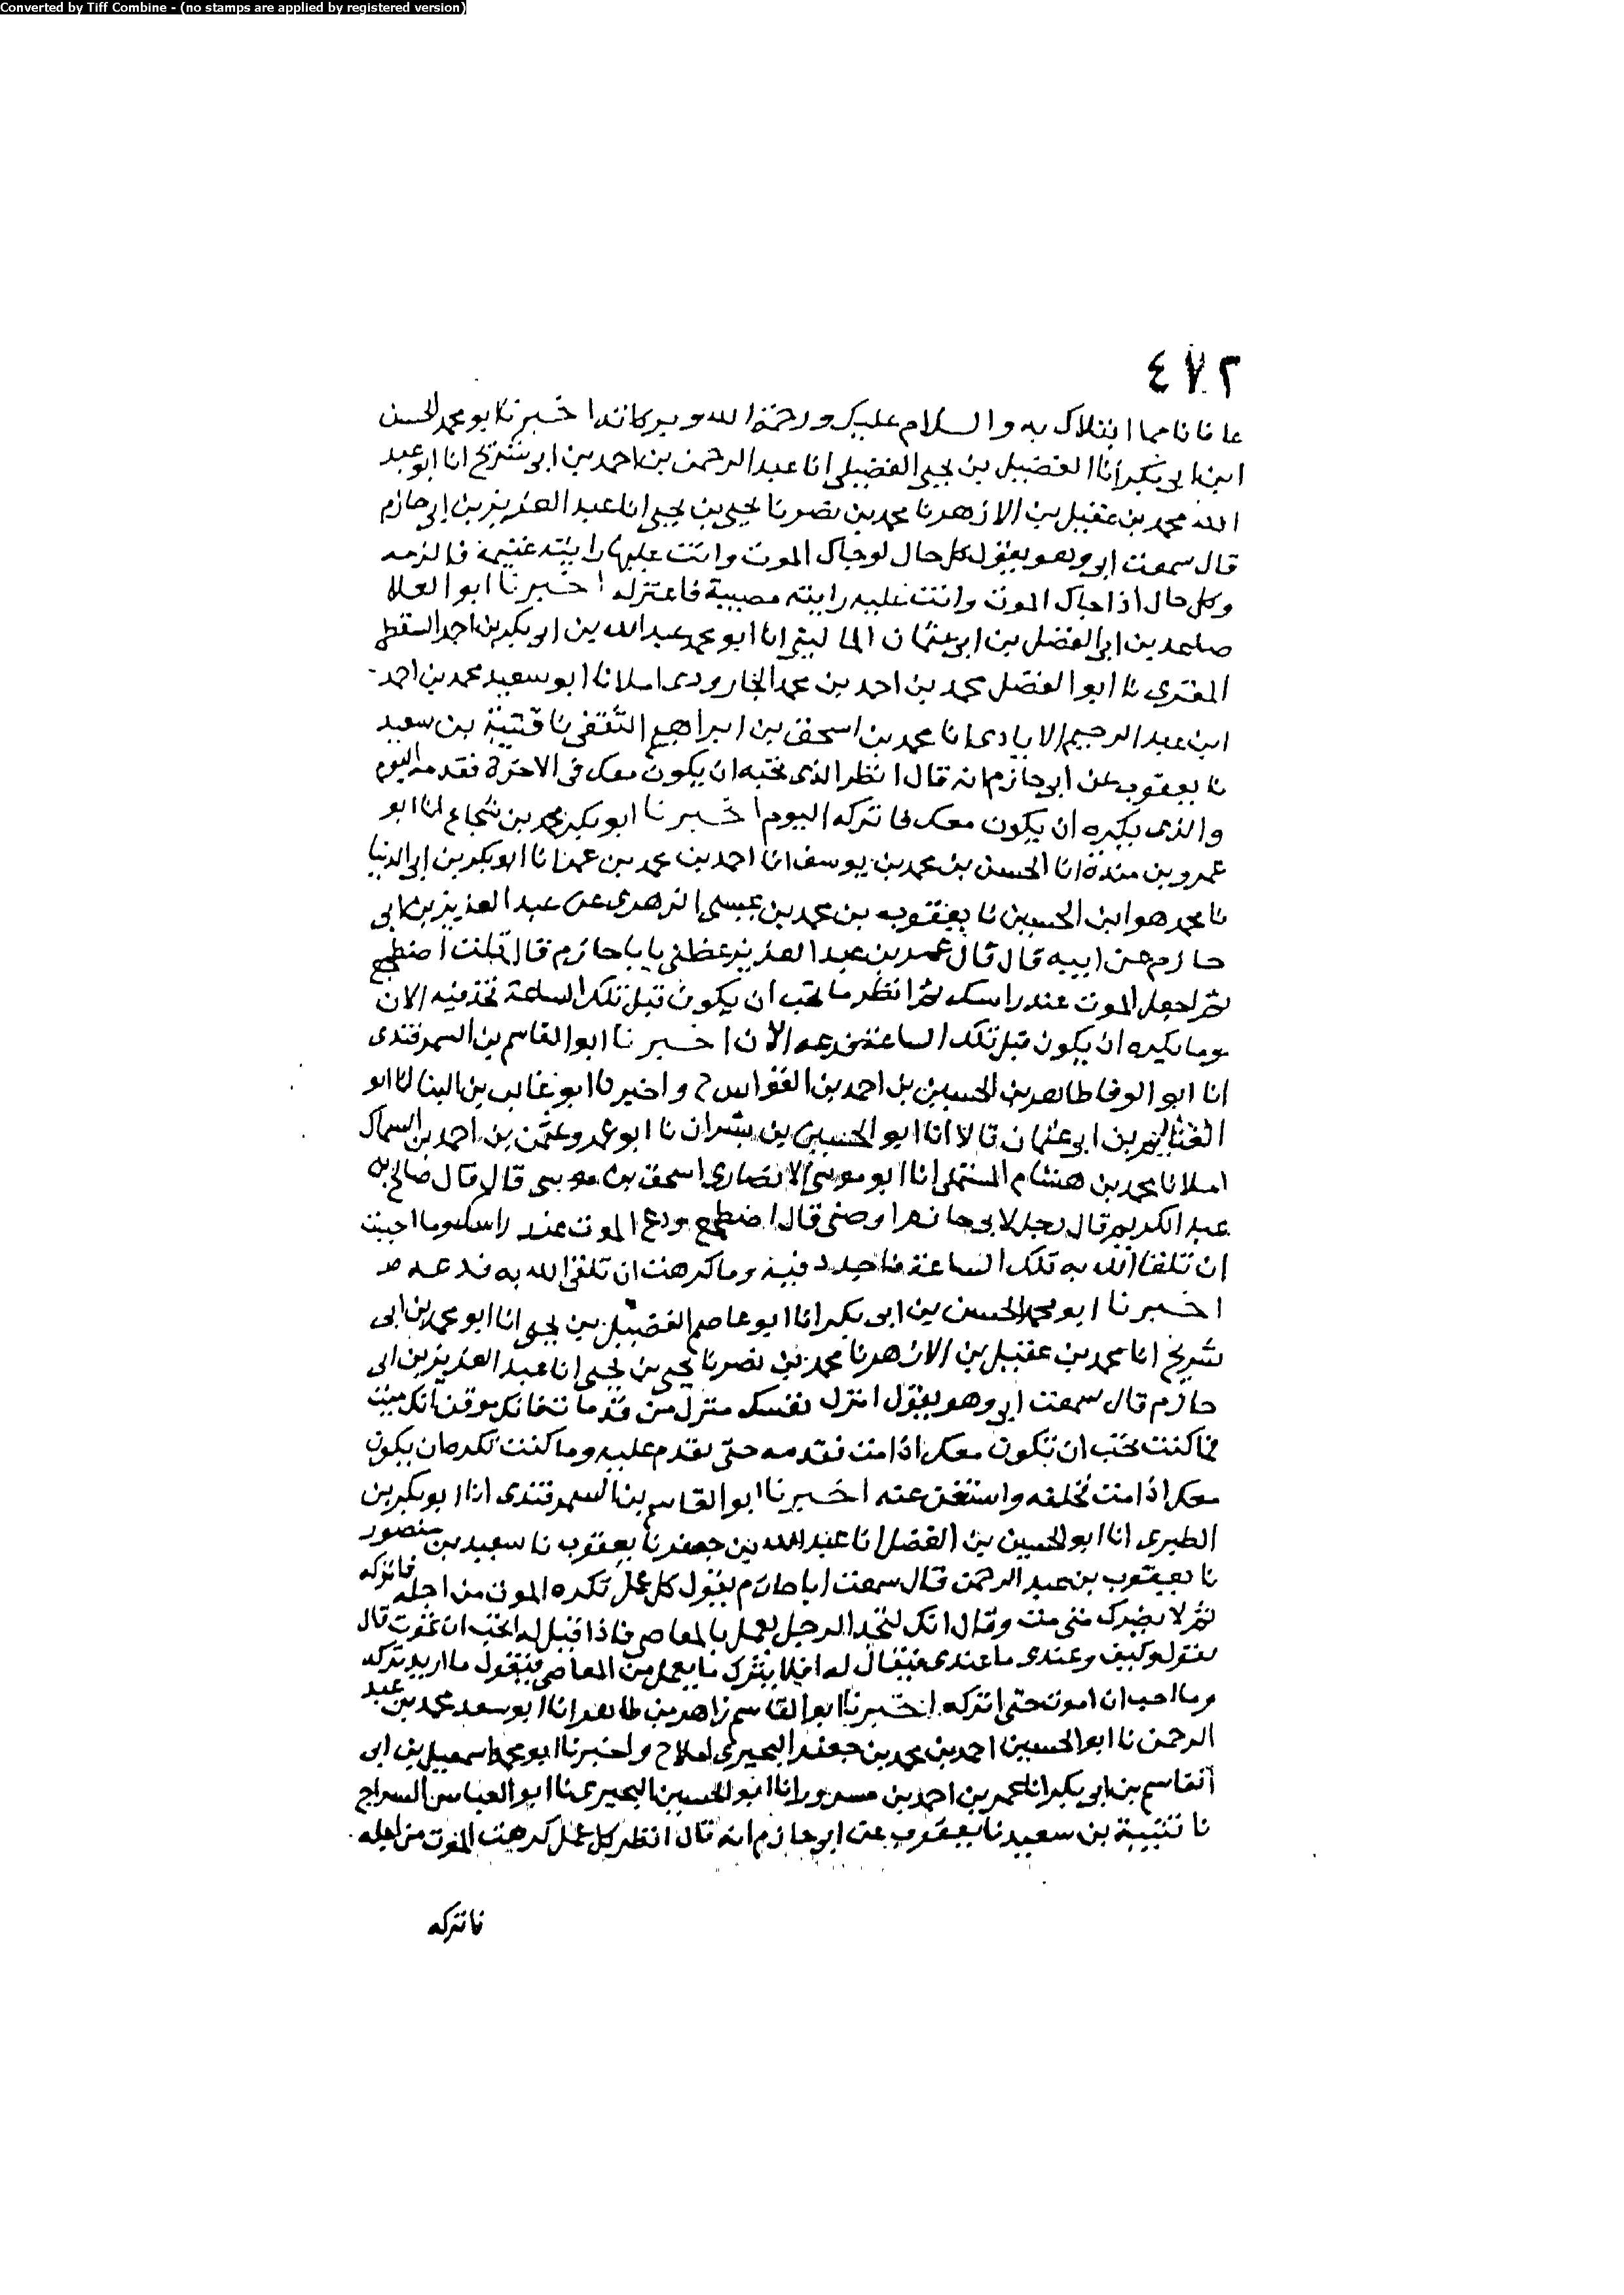 Converted by Tiff Combine - (no stamps are applied by registered version)
٤٧٢
عافانا مما ابتلاك به والسلام عليك ورحمة الله وبركاته اخبرنا ابو محمد الحسن
ابن ابى بكر انا الفضيل بن يحيى الفضيلى انا عبد الرحمن بن احمد بن ابى شريح انا ابو عبد
الله محمد بن عقيل بن الازهر نا محمد بن نصر نا يحيى بن يحيى انا عبد العزيز بن ابى حازم
قال سمعت ابى وهو يقول كل حال لو جاك الموت وانت عليها رايته غنيمة فالزمه
وكل حال اذا جاك الموت وانت عليه رايته مصيبة فاعتزله اخبرنا ابو العلا
صاعد بن ابى الفضل بن ابى عثمان الماليني انا ابو محمد عبد الله بن ابى بكر بن احمد السقطى
المقرى نا ابو الفضل محمد بن احمد بن محمد الجارودى املانا ابو سعيد محمد بن احمد
ابن عبد الرحيم الايادى انا محمد بن اسحق بن ابراهيم الثقفى نا قتيبة بن سعيد
نا يعقوب عن ابى حازم انه قال انظر الذى تحبه ان يكون معك فى الاخرة فقدمه اليوم
والذى يكره ان يكون معك فاتركه اليوم اخبرنا ابو بكر محمد بن شجاع انا ابو
عمرو بن مندة انا الحسن بن محمد بن يوسف انا احمد بن محمد بن عمر انا ابو بكر بن ابى الدنيا
نا محمد هو ابن الحسين نا يعقوب بن محمد بن عيسى الزهرى عن عبد العزيز بن ابى
حازم عن ابيه قال قال عمر بن عبد العزيز عظنى يابا حازم قال قلت اضطجع
ثم اجعل الموت عند راسك ثم انظر ما تحب ان يكون قبل تلك الساعة فخذ فيه الان
وما يكره ان يكون قبل تلك الساعة فدعه الان اخبرنا ابو القاسم بن السمرقندى
انا ابو الوفا طاهر بن الحسين بن احمد بن القواس ح واخبرنا ابو غالب بن البنا انا ابو
الغنايم بن ابى عثمان قالا انا ابو الحسين بن بشران نا ابو عمرو عثمن بن احمد بن السماك
املا نا محمد بن هشام المستملى انا ابو موسى الانصارى اسحق بن موسى قال قال صالح بن
عبد الكريم قال رجل لابى حازم اوصنى قال اضطجع ودع الموت عند راسك وما احببت
ان تلقا الله به تلك الساعة فاجدد فيه وما كرهت ان تلقى الله به فدعه
اخبرنا ابو محمد الحسن بن ابى بكر انا ابو عاصم الفضيل بن يحيى انا ابو محمد بن ابى
شريح انا محمد بن عقيل بن الازهر نا محمد بن نصر نا يحيى بن يحيى انا عبد العزيز بن ابى
حازم قال سمعت ابى وهو يقول انزل نفسك منزل من قد مات فانك موقن انك ميت
فما كنت تحب ان تكون معك اذا مت فقدمه حتى تقدم عليه وما كنت تكره ان يكون
معك اذا مت تخلفه واستغن عنه اخبرنا ابو القاسم بن السمرقندى انا ابو بكر بن
الطبرى انا ابو الحسين بن الفضل انا عبد الله بن جعفر نا يعقوب نا سعيد بن منصور
نا يعقوب بن عبد الرحمن قال سمعت ابا حازم يقول كل عمل تكره الموت من اجله فاتركه
ثم لا يضرك متى مت وقال انك لتجد الرجل يعمل بالمعاصى فاذا قيل له اتحب ان تموت قال
يقول وكيف وعندى ما عندى فيقال له افلا تترك ما يعمل من المعاصى فيقول ما اريد تركه
وما احب ان اموت حتى اتركه اخبرنا ابو القاسم زاهر بن طاهر انا ابو سعد محمد بن عبد
الرحمن نا ابو الحسين احمد بن محمد بن جعفر البحيرى املا ح واخبرنا ابو محمد اسمعيل بن ابى
القاسم بن ابى بكر انا عمر بن احمد بن مسرور انا ابو الحسين البحيرى نا ابو العباس السراج
نا قتيبة بن سعيد نا يعقوب عن ابى حازم انه قال انظر كل عمل كرهت الموت من اجله
فاتركه